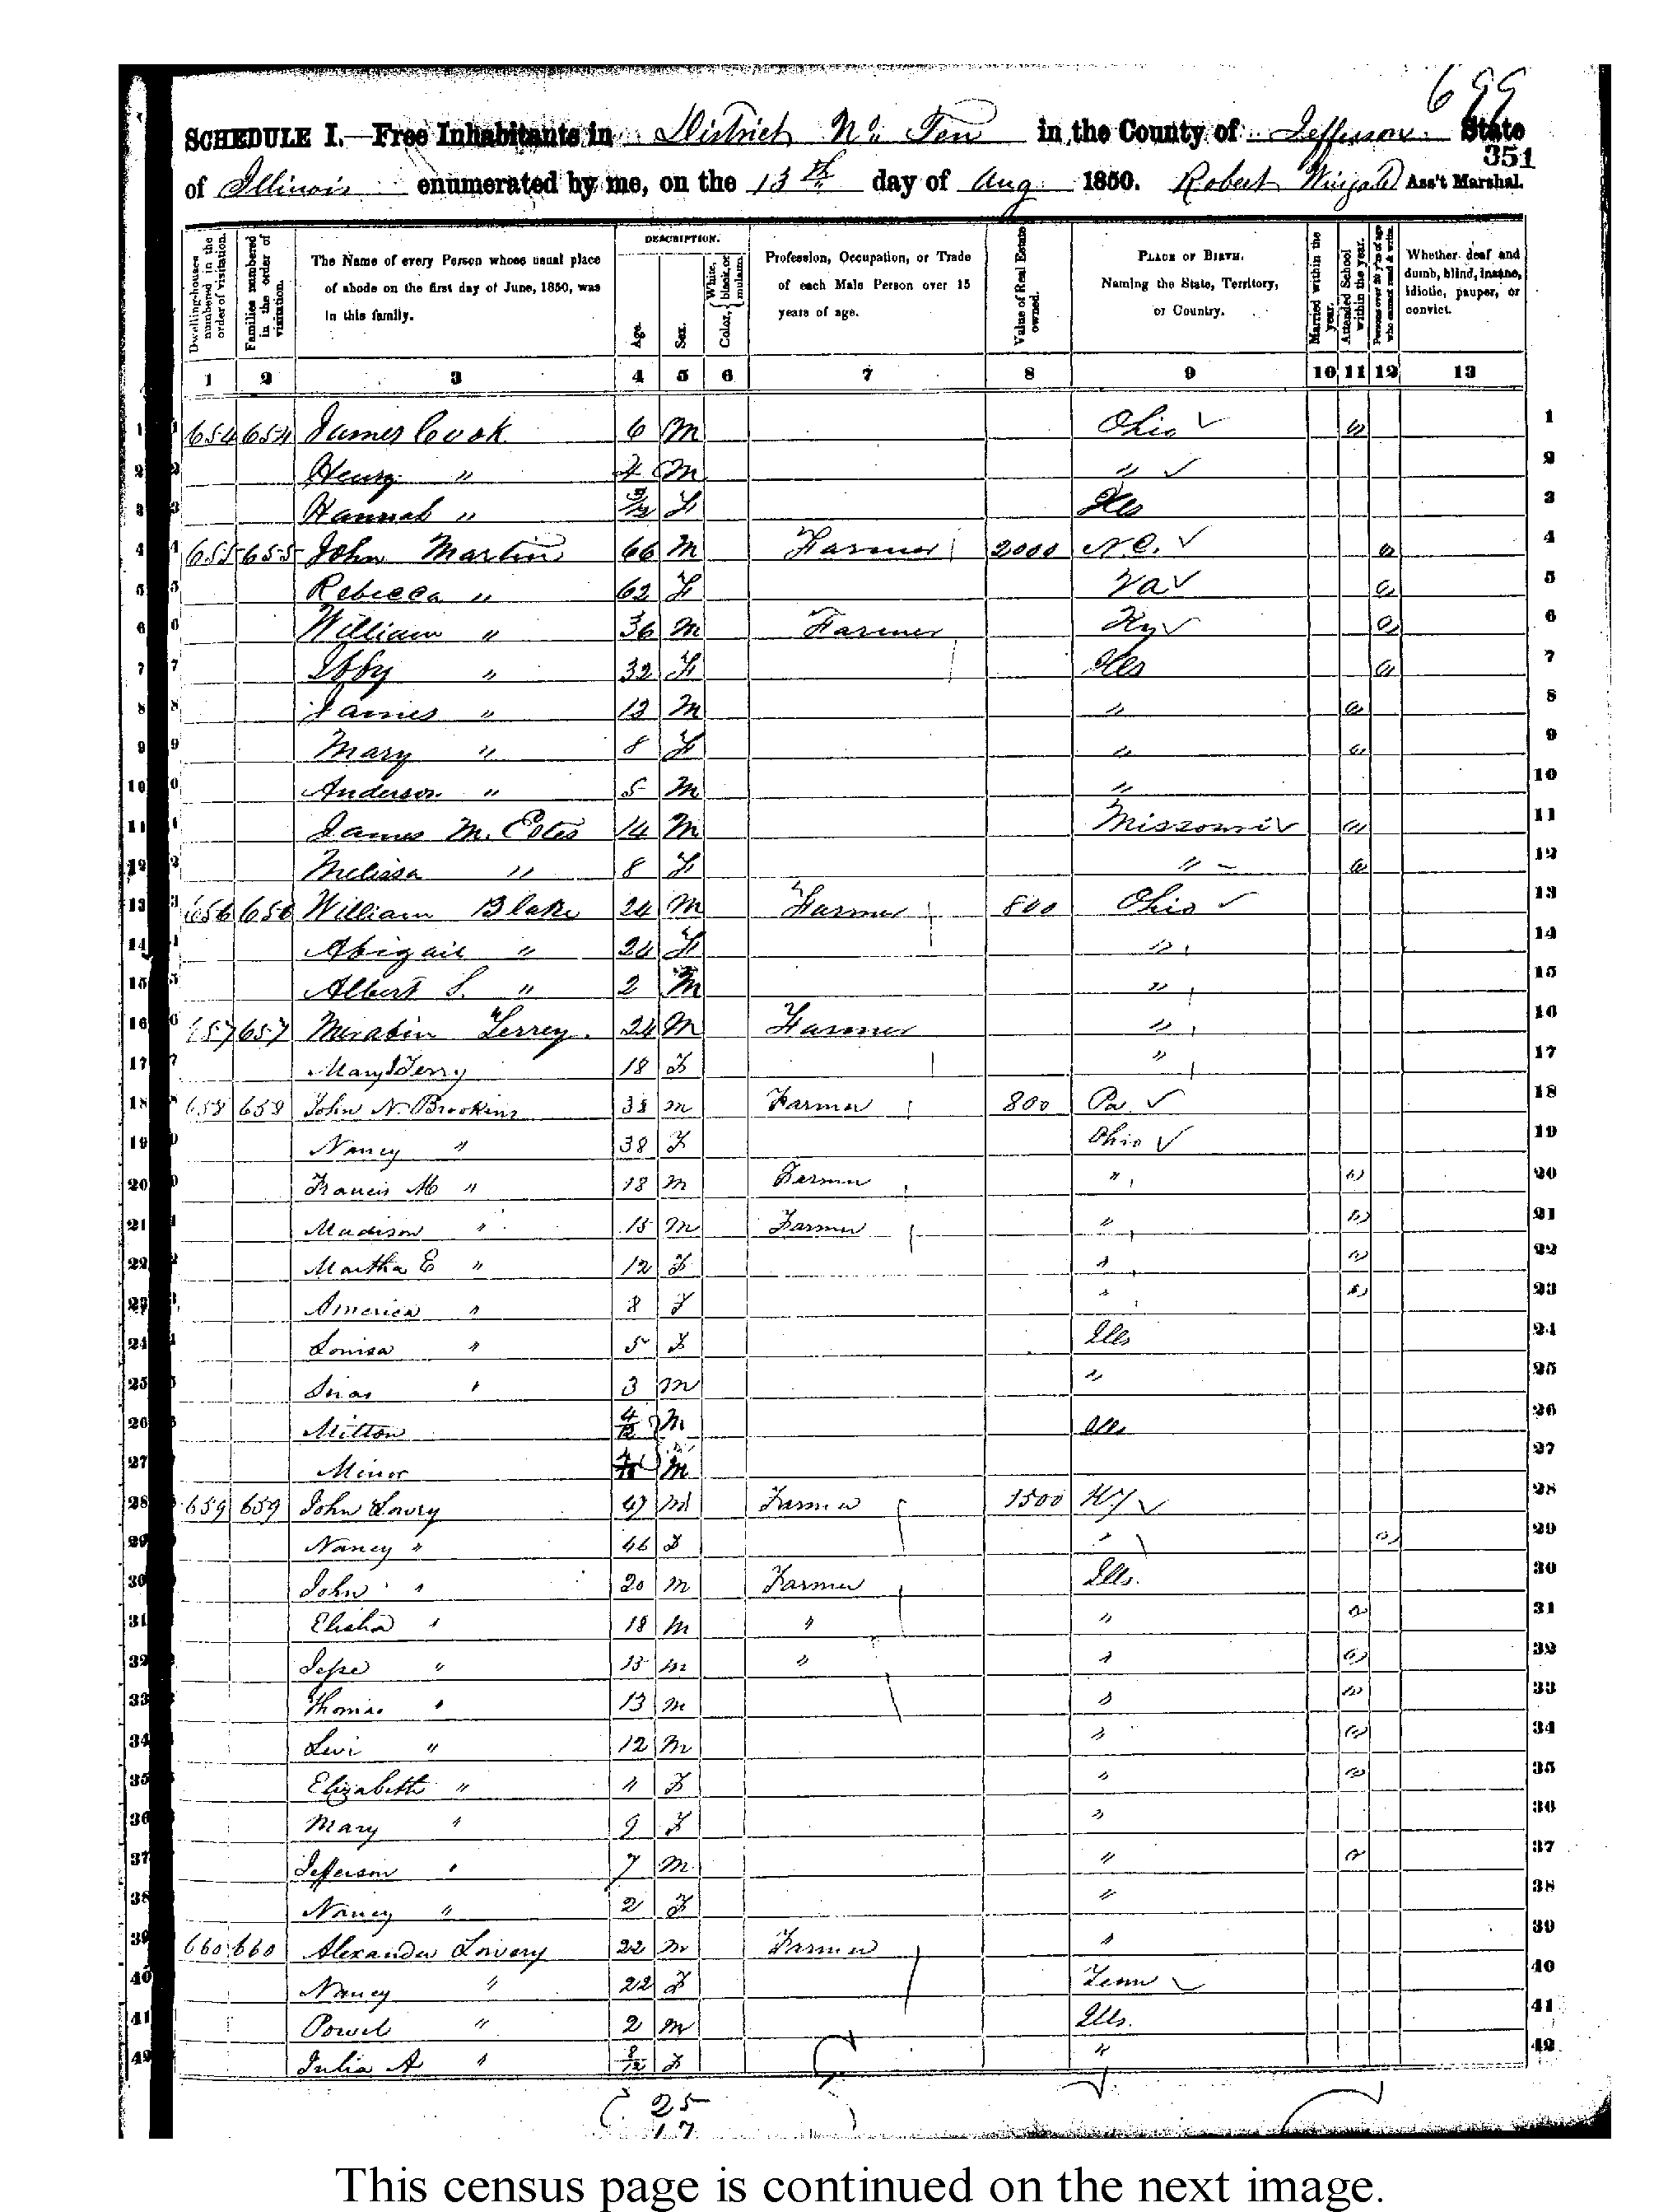 699
SCHEDULE I.—Free Inhabitants in District No. Ten in the County of Jefferson State
351
of Illinois enumerated by me, on the 13th day of Aug 1850. Robert Wingate Ass't Marshal.
Dwelling-houses numbered in the order of visitation.
Families numbered in the order of visitation.
The Name of every Person whose usual place of abode on the first day of June, 1850, was in this family.
DESCRIPTION.
Age.
Sex.
Color, White, black, or mulatto.
Profession, Occupation, or Trade of each Male Person over 15 years of age.
Value of Real Estate owned.
PLACE OF BIRTH. Naming the State, Territory, or Country.
Married within the year.
Attended School within the year.
Persons over 20 y'rs of age who cannot read & write.
Whether deaf and dumb, blind, insane, idiotic, pauper, or convict.
1 2 3 4 5 6 7 8 9 10 11 12 13
1 654 654 James Cook 6 M Ohio ✓ 1
2 Henry " 4 M " ✓ 2
3 Hannah " F Ills 3
4 655 655 John Martin 66 M Farmer 2000 N.C. ✓ 4
5 Rebecca " 62 F Va ✓ 5
6 William " 36 M Farmer Ky ✓ 6
7 Ibby " 32 F Ills 7
8 James " 13 M " 8
9 Mary " 8 F " 9
10 Anderson " 5 M " 10
11 James M. Estes 14 M Missouri ✓ 11
12 Melissa " 8 F " 12
13 656 656 William Blake 24 M Farmer 800 Ohio ✓ 13
14 Abigail " 24 F " 14
15 Albert S. " 2 M " 15
16 657 657 Terrey 24 M Farmer " 16
17 Mary Terry 18 F " 17
18 658 658 John N. Brookins 38 M Farmer 800 Pa ✓ 18
19 Nancy " 38 F Ohio ✓ 19
20 Francis M " 18 M Farmer " 20
21 Madison " 15 M Farmer " 21
22 Martha E " 12 F " 22
23 America " 8 F " 23
24 Louisa " 5 F Ills 24
25 " 3 M " 25
26 Milton 4/12 M Ills 26
27 Minor 4/12 M 27
28 659 659 John Lowry 47 M Farmer 1500 Ky ✓ 28
29 Nancy " 46 F " 29
30 John " 20 M Farmer Ills. 30
31 Elisha " 18 M " " 31
32 Jesse " 15 M " " 32
33 Thomas " 13 M " 33
34 Levi " 12 M " 34
35 Elizabeth " 11 F " 35
36 Mary " 9 F " 36
37 Jefferson " 7 M " 37
38 Nancy " 2 F " 38
39 660 660 Alexander Lowery 22 M Farmer " 39
40 Nancy " 22 F Tenn ✓ 40
41 Powel " 2 M Ills. 41
42 Julia A " 8/12 F " 42
25
17
This census page is continued on the next image.